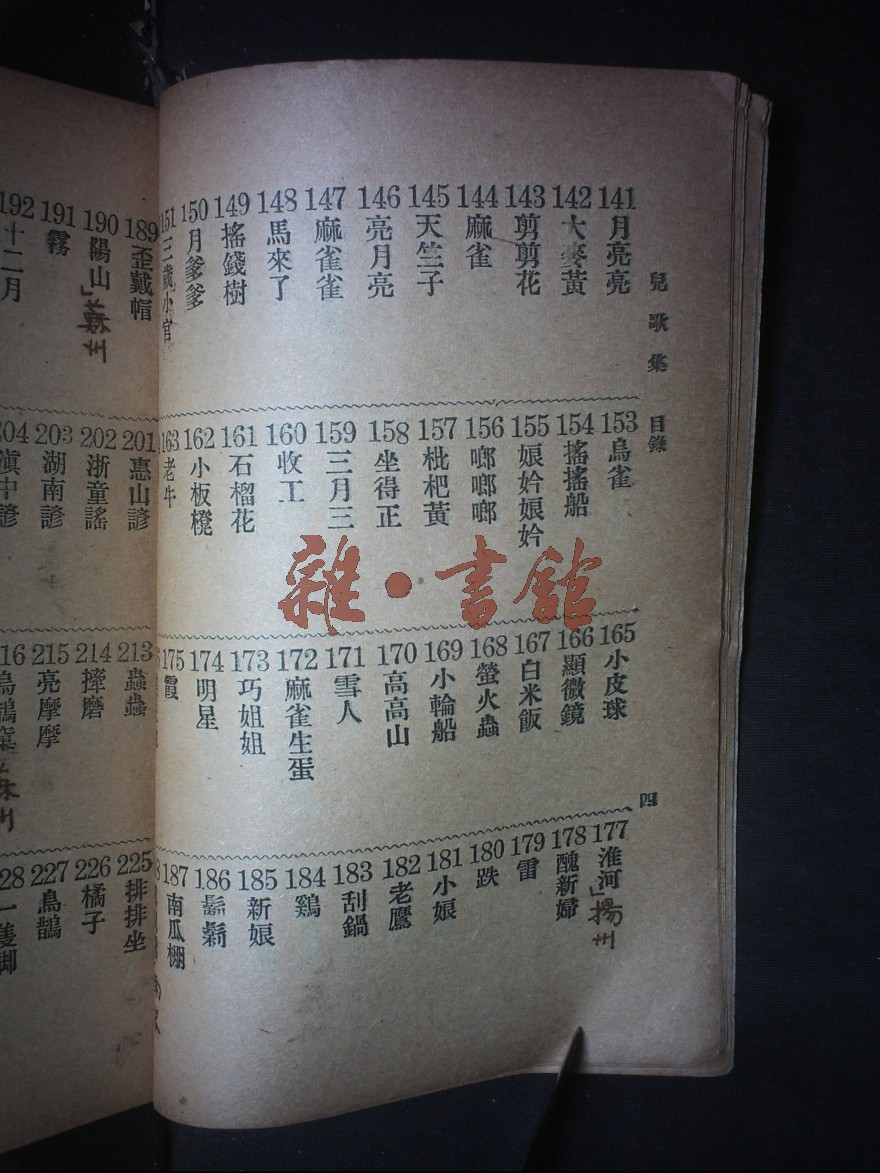 兒歌集 目錄 四
141 月亮亮
142 大麥黃
143 剪剪花
144 麻雀
145 天竺子
146 亮月亮
147 麻雀雀
148 馬來了
149 搖錢樹
150 月爹爹
151 三歲小官
153 鳥雀
154 搖搖船
155 娘妗娘妗
156 啷啷啷
157 枇杷黃
158 坐得正
159 三月三
160 收工
161 石榴花
162 小板櫈
163 老牛
165 小皮球
166 顯微鏡
167 白米飯
168 螢火蟲
169 小輪船
170 高高山
171 雪人
172 麻雀生蛋
173 巧姐姐
174 明星
175 霞
177 淮河 揚州
178 醜新婦
179 雷
180 跌
181 小娘
182 老鷹
183 刮鍋
184 鷄
185 新娘
186
187 南瓜棚
189 歪戴帽
190 陽山 蘇州
191 霧
192 十二月
201 惠山諺
202 浙童謠
203 湖南諺
204 滇中諺
213 蟲蟲
214 摔磨
215 亮摩摩
16 烏鵲窠 蘇州
225 排排坐
226 橘子
227 烏鵲
28 一隻脚
雜·書館